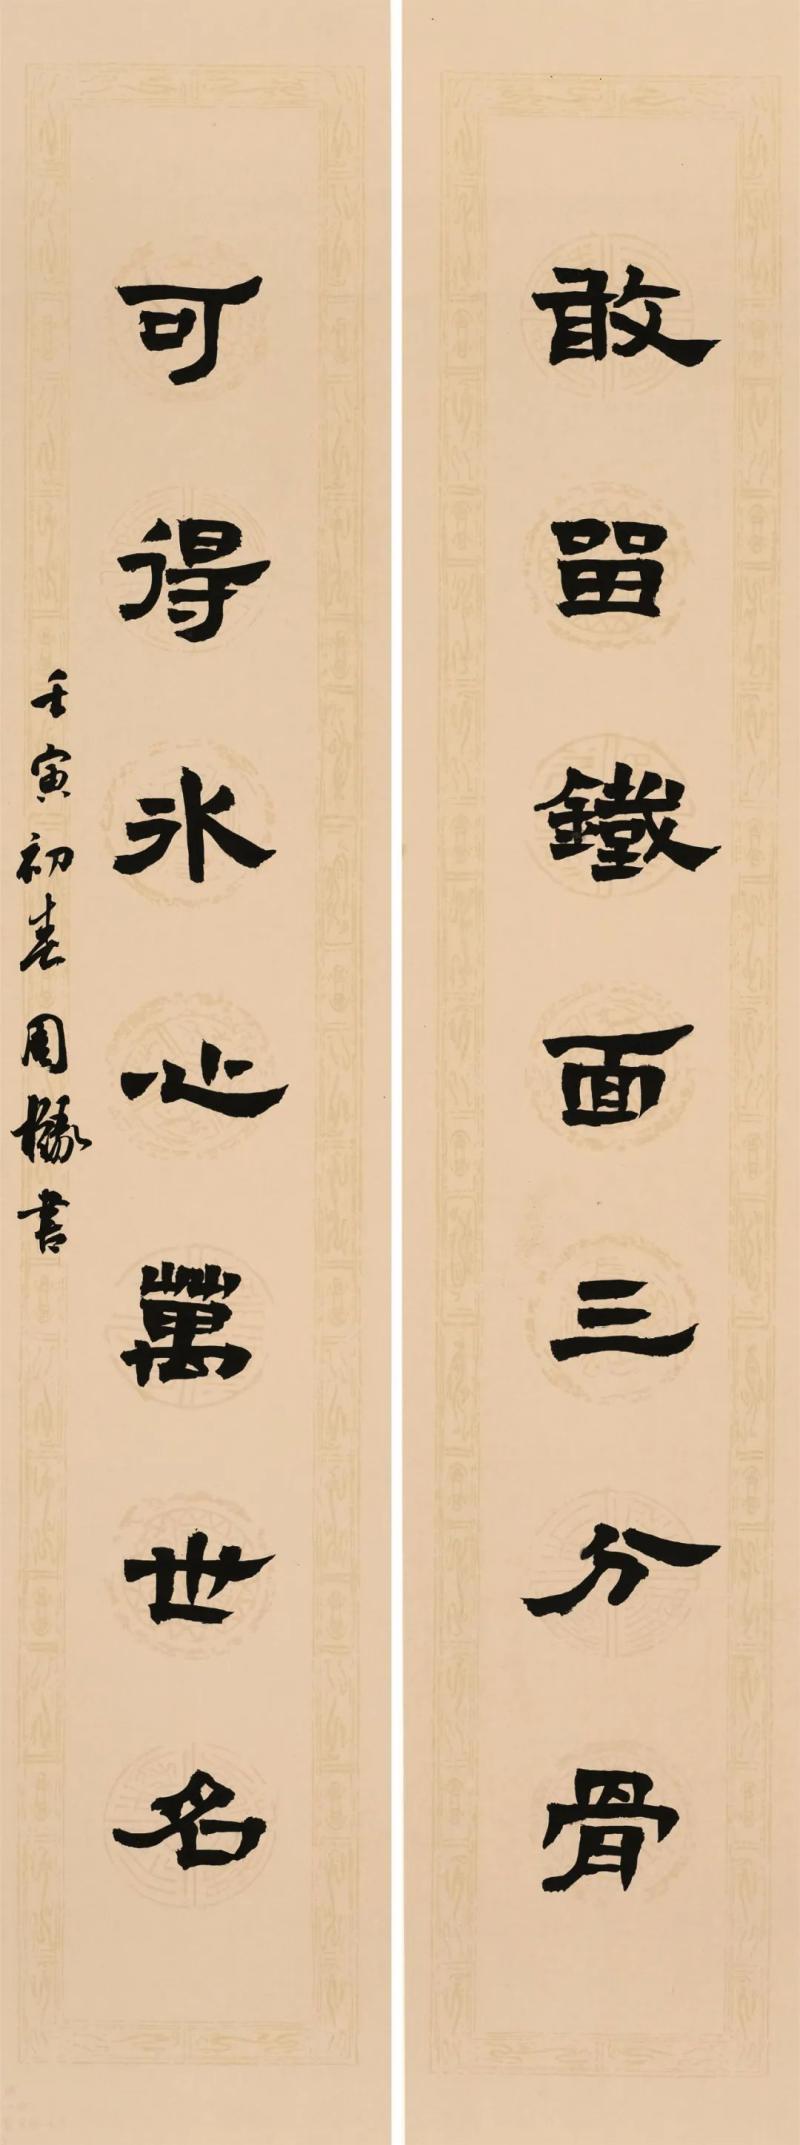 敢留鐵面三分骨
可得冰心萬世名
壬寅初春周橼書